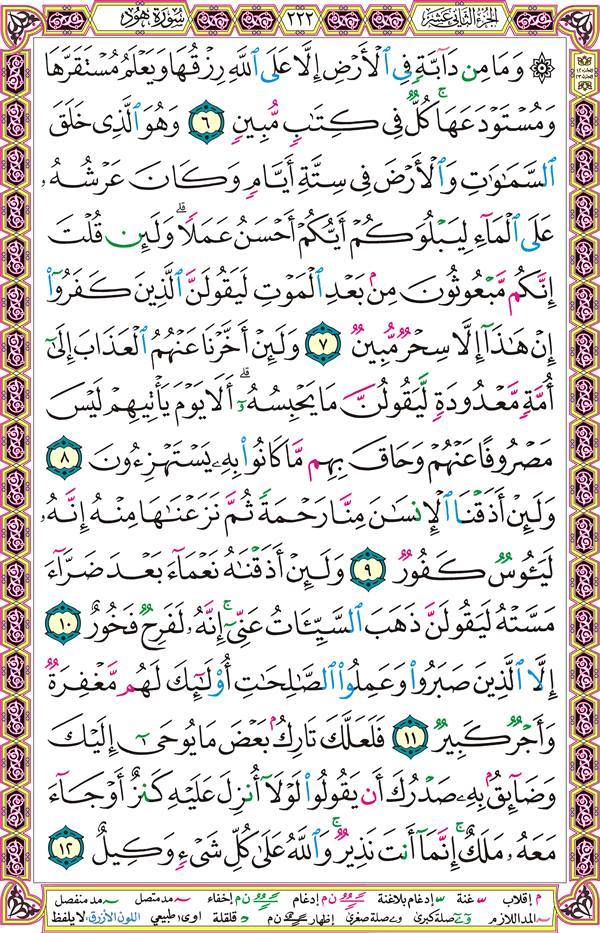 الجزء الثاني عشر ٢٢٢ سورة هود
۞ وَمَا مِن دَآبَّةٍ فِى ٱلْأَرْضِ إِلَّا عَلَى ٱللَّهِ رِزْقُهَا وَيَعْلَمُ مُسْتَقَرَّهَا
وَمُسْتَوْدَعَهَا ۚ كُلٌّ فِى كِتَٰبٍ مُّبِينٍ ٦ وَهُوَ ٱلَّذِى خَلَقَ
ٱلسَّمَٰوَٰتِ وَٱلْأَرْضَ فِى سِتَّةِ أَيَّامٍ وَكَانَ عَرْشُهُۥ
عَلَى ٱلْمَآءِ لِيَبْلُوَكُمْ أَيُّكُمْ أَحْسَنُ عَمَلًا ۗ وَلَئِن قُلْتَ
إِنَّكُم مَّبْعُوثُونَ مِنۢ بَعْدِ ٱلْمَوْتِ لَيَقُولَنَّ ٱلَّذِينَ كَفَرُوٓا۟
إِنْ هَٰذَآ إِلَّا سِحْرٌ مُّبِينٌ ٧ وَلَئِنْ أَخَّرْنَا عَنْهُمُ ٱلْعَذَابَ إِلَىٰٓ
أُمَّةٍ مَّعْدُودَةٍ لَّيَقُولُنَّ مَا يَحْبِسُهُۥٓ ۗ أَلَا يَوْمَ يَأْتِيهِمْ لَيْسَ
مَصْرُوفًا عَنْهُمْ وَحَاقَ بِهِم مَّا كَانُوا۟ بِهِۦ يَسْتَهْزِءُونَ ٨
وَلَئِنْ أَذَقْنَا ٱلْإِنسَٰنَ مِنَّا رَحْمَةً ثُمَّ نَزَعْنَٰهَا مِنْهُ إِنَّهُۥ
لَيَـُٔوسٌ كَفُورٌ ٩ وَلَئِنْ أَذَقْنَٰهُ نَعْمَآءَ بَعْدَ ضَرَّآءَ
مَسَّتْهُ لَيَقُولَنَّ ذَهَبَ ٱلسَّيِّـَٔاتُ عَنِّىٓ ۚ إِنَّهُۥ لَفَرِحٌ فَخُورٌ ١٠
إِلَّا ٱلَّذِينَ صَبَرُوا۟ وَعَمِلُوا۟ ٱلصَّٰلِحَٰتِ أُو۟لَٰٓئِكَ لَهُم مَّغْفِرَةٌ
وَأَجْرٌ كَبِيرٌ ١١ فَلَعَلَّكَ تَارِكٌۢ بَعْضَ مَا يُوحَىٰٓ إِلَيْكَ
وَضَآئِقٌۢ بِهِۦ صَدْرُكَ أَن يَقُولُوا۟ لَوْلَآ أُنزِلَ عَلَيْهِ كَنزٌ أَوْ جَآءَ
مَعَهُۥ مَلَكٌ ۚ إِنَّمَآ أَنتَ نَذِيرٌ ۚ وَٱللَّهُ عَلَىٰ كُلِّ شَىْءٍ وَكِيلٌ ١٢
م إقلاب غنة إدغام بلاغنة ن م إدغام ن م إخفاء مد متصل مد منفصل
المد اللازم صلة كبرى صلة صغرى إظهار ن م قلقلة اوى طبيعي اللون الأزرق لا يلفظ